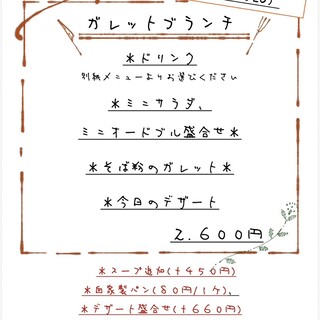 ガレットブランチ
＊ドリンク
別紙メニューよりお選びください
＊ミニサラダ、
ミニオードブル盛合せ＊
＊そば粉のガレット＊
＊今日のデザート
2.600円
＊スープ追加(＋450円)
＊自家製パン(80円/1ケ)、
＊デザート盛合せ(＋660円)